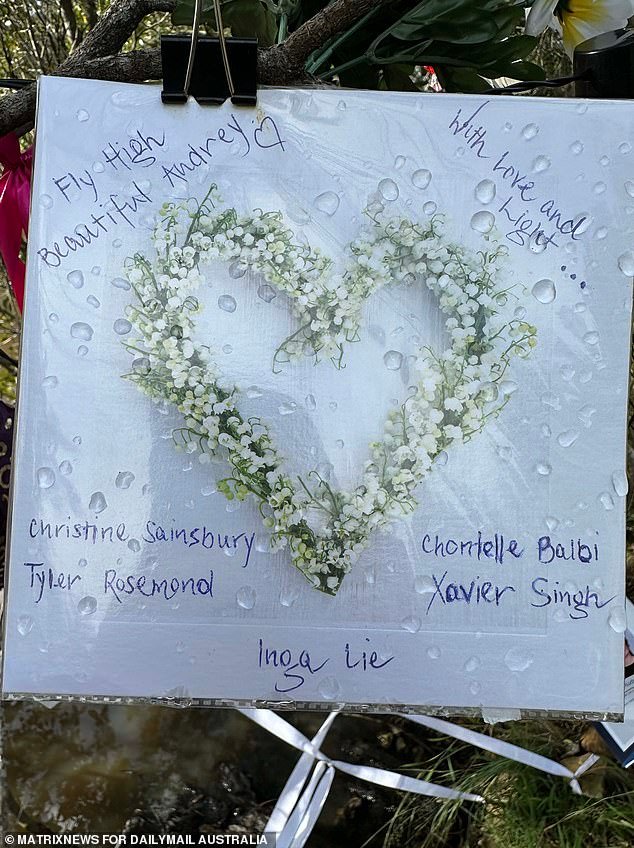 Fly High
Beautiful Audrey ♡
With Love and
Light ...
Christine Sainsbury
Tyler Rosemond
Chontelle Balbi
Xavier Singh
Inga Lie
© MATRIXNEWS FOR DAILYMAIL AUSTRALIA